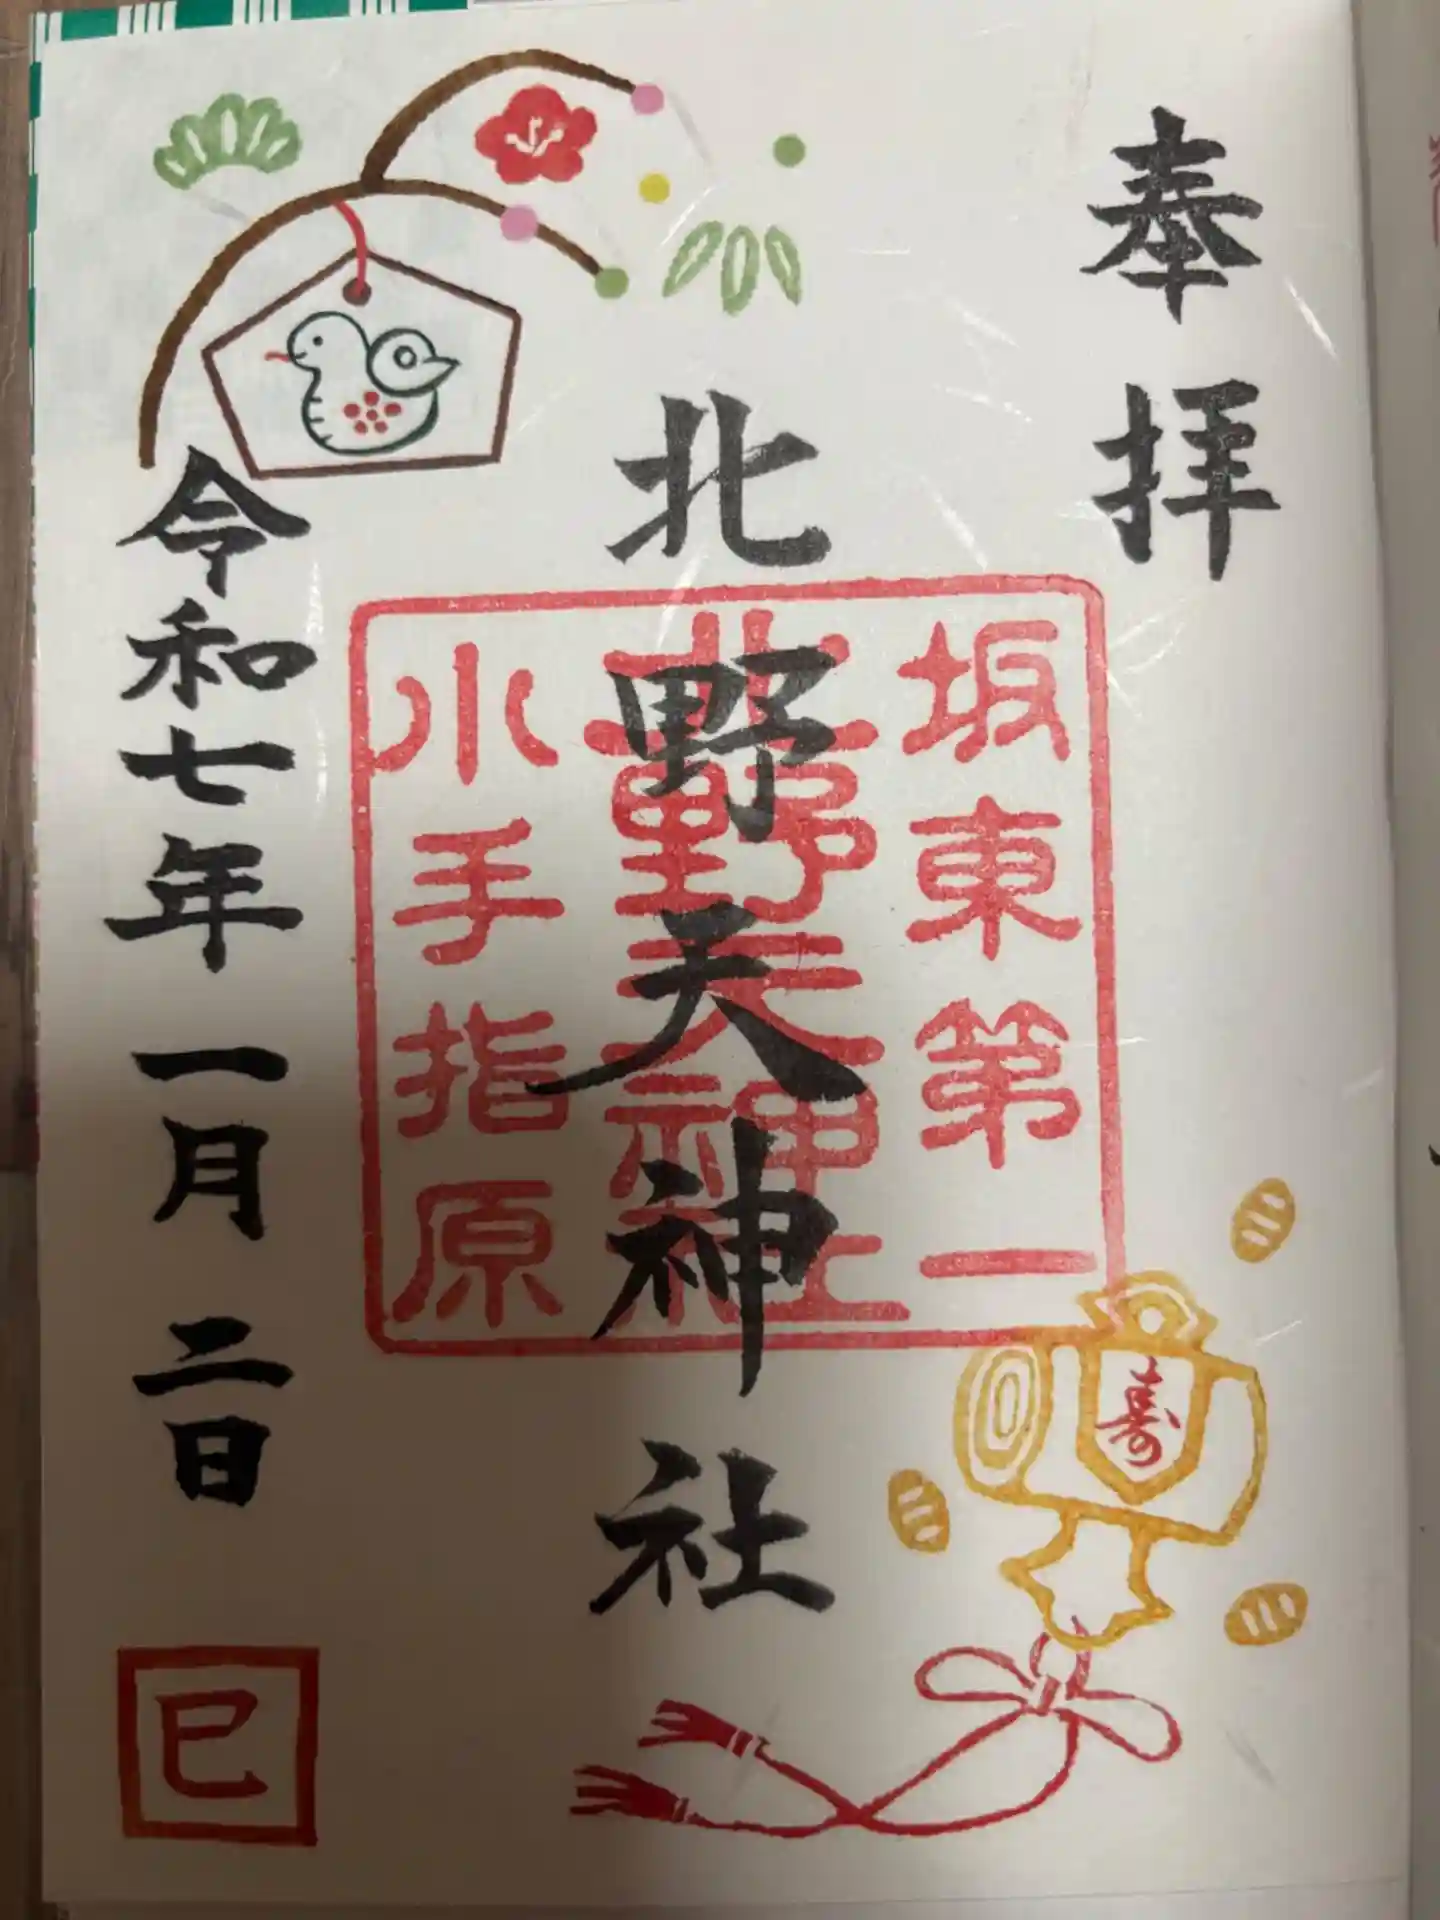 奉拝
坂東第一
北野天神社
北野天神社
小手指原
令和七年一月二日
寿
巳